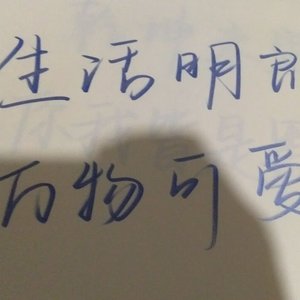 生活明朗
万物可爱